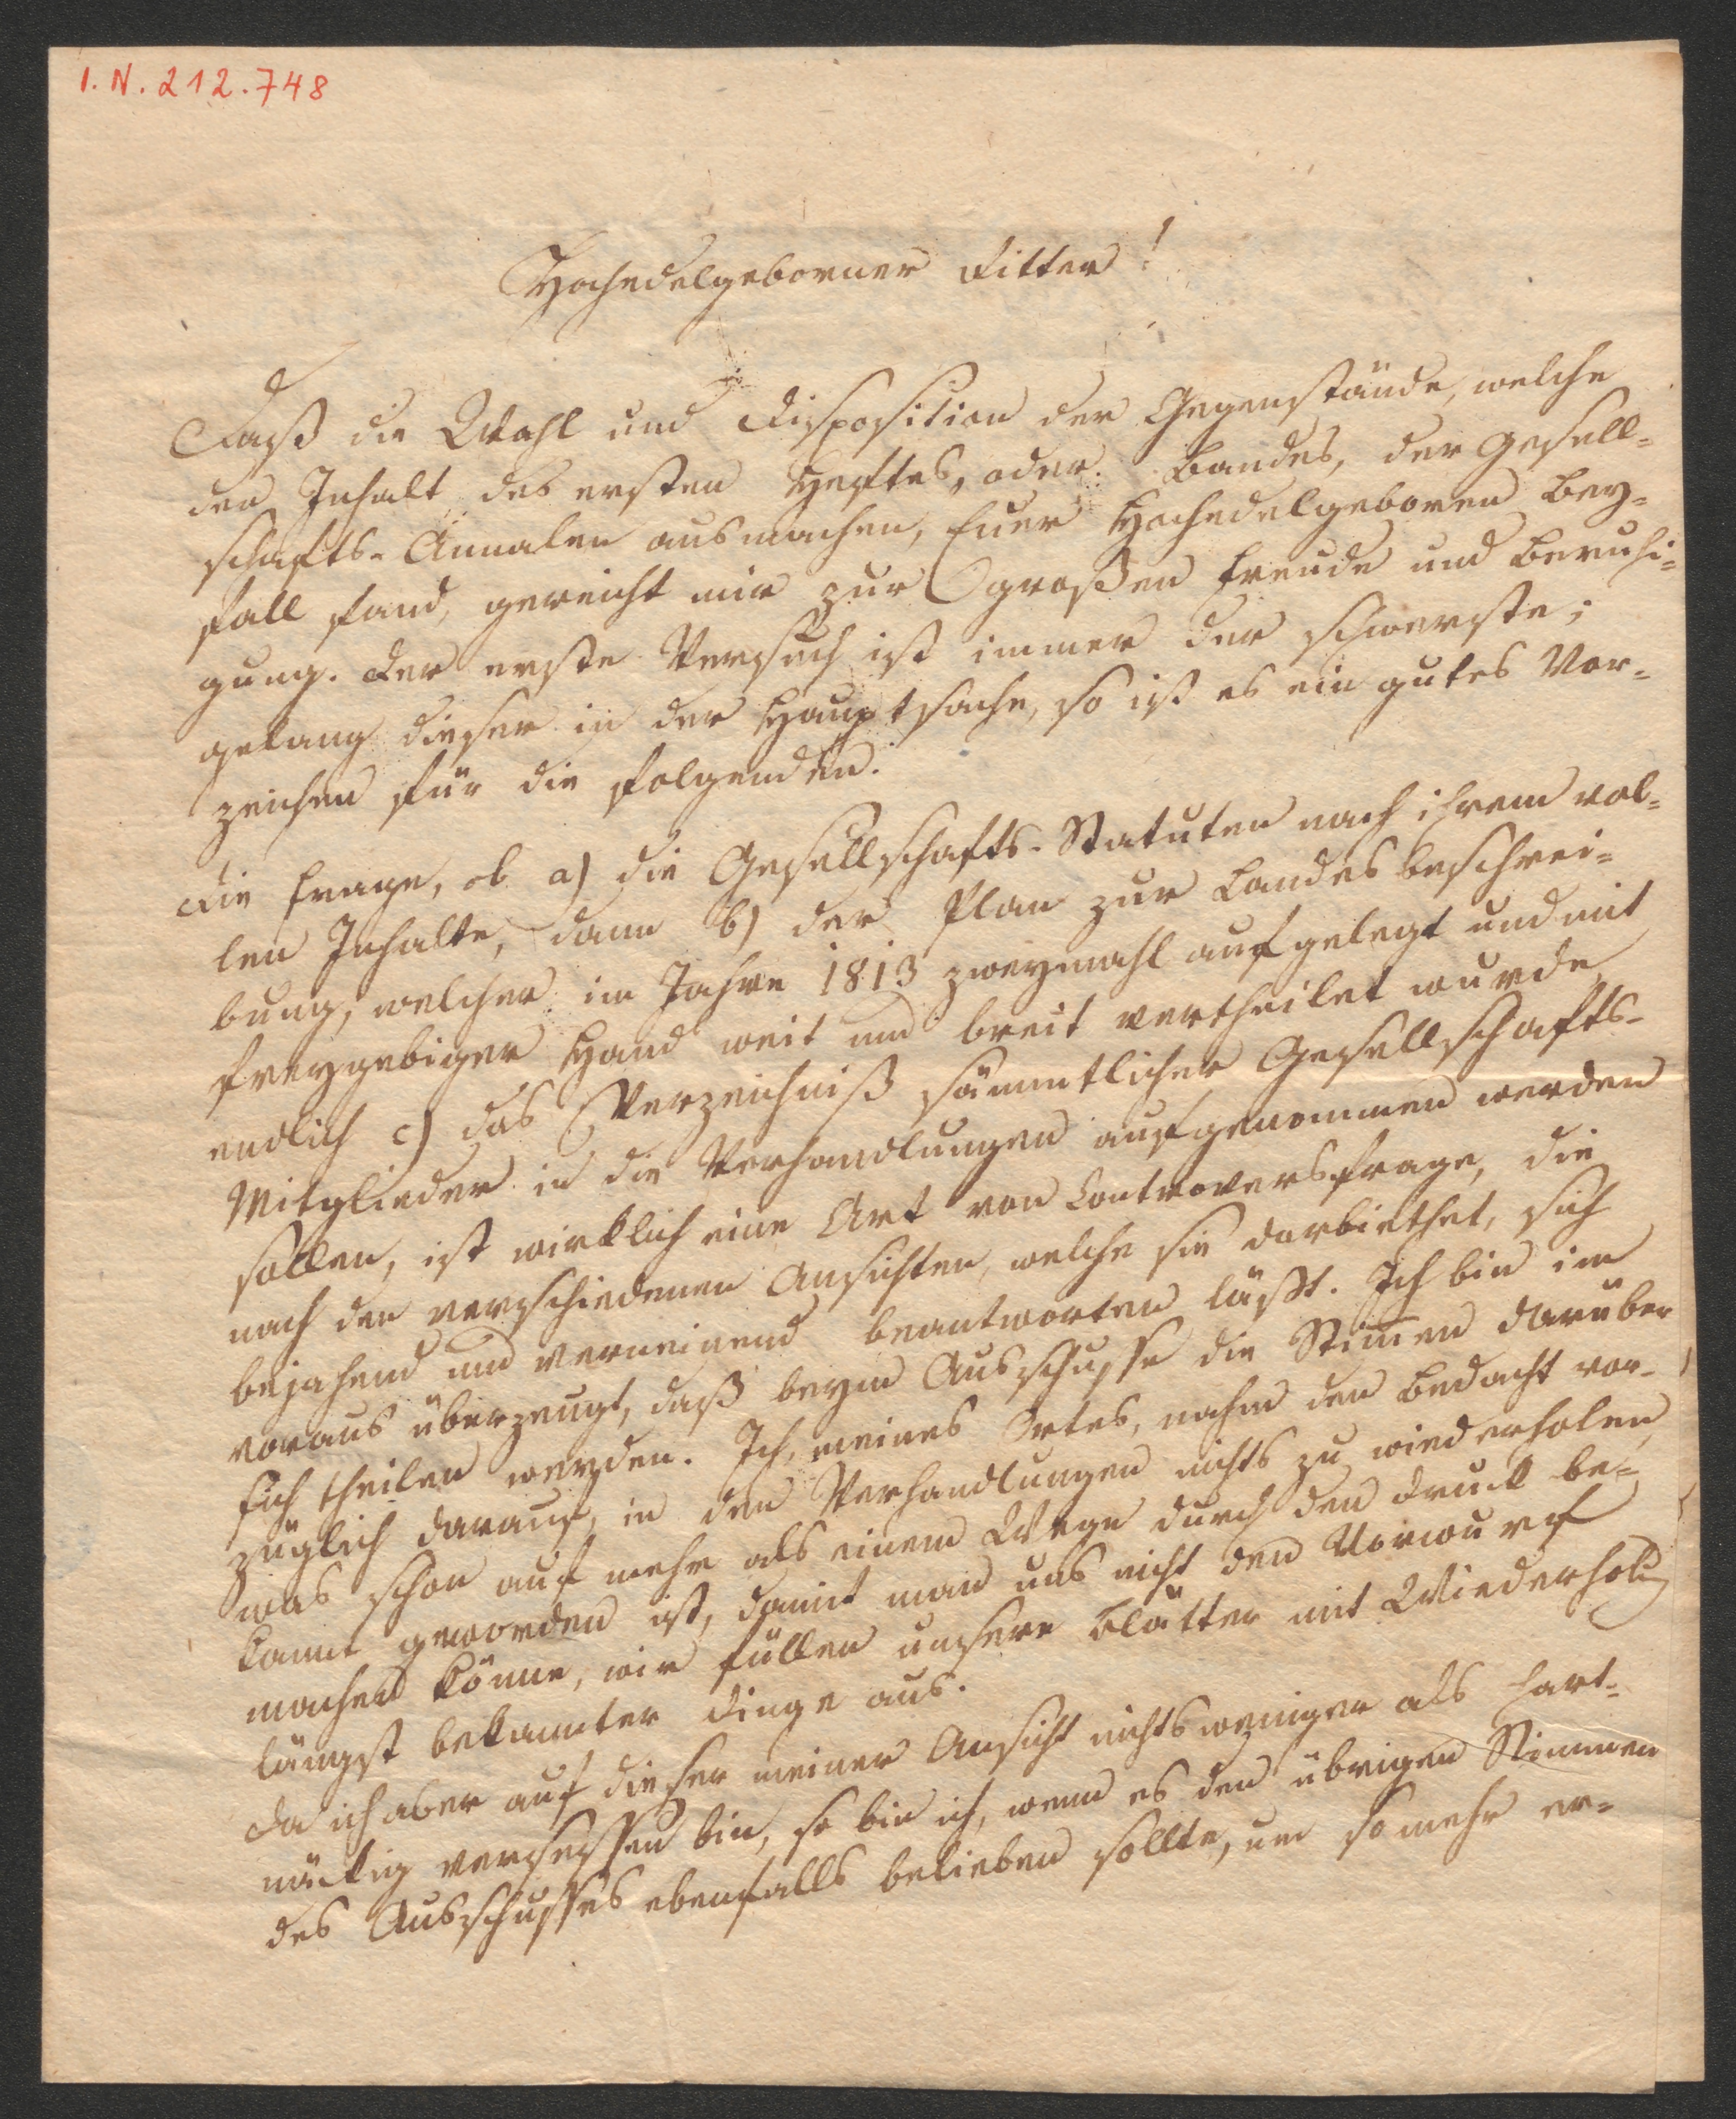 I. N. 212.748
Hochedelgeborner Ritter!
Daß die Wahl und Disposition der Gegenstände, welche
den Inhalt des ersten Heftes, oder Bandes, der Gesell-
schafts-Annalen ausmachen, Euer Hochedelgeboren Bey-
fall fand, gereicht mir zur großen Freude und Beruhi-
gung. Der erste Versuch ist immer der schwerste;
gelang dieser in der Hauptsache, so ist es ein gutes Vor-
zeichen für die folgenden.
Die Frage, ob a) die Gesellschafts-Statuten nach ihrem vol-
len Inhalte, dann b) der Plan zur Landesbeschrei-
bung, welcher im Jahre 1813 zweymahl aufgelegt und mit
freygebiger Hand weit und breit vertheilet wurde,
endlich c) das Verzeichniß sämmtlicher Gesellschafts-
Mitglieder in die Verhandlungen aufgenommen werden
sollen, ist wirklich eine Art von Controversfrage, die
nach den verschiedenen Ansichten, welche sie darbiethet, sich
bejahend und verneinend beantworten läßt. Ich bin im
voraus überzeugt, daß beym Ausschusse die Stimen darüber
sich theilen werden. Ich, meines Ortes, nahm den Bedacht vor-
züglich darauf, in den Verhandlungen nichts zu wiederholen,
was schon auf mehr als einem Wege durch den Druck be-
kannt geworden ist, damit man uns nicht den Vorwurf
machen könne, wir füllen unsere Blätter mit Wiederholung
längst bekannter Dinge aus.
Da ich aber auf dieser meiner Ansicht nichts weniger als hart-
näckig versessen bin, so bin ich, wenn es den übrigen Stimmen
des Ausschusses ebenfalls belieben sollte, um so mehr er-